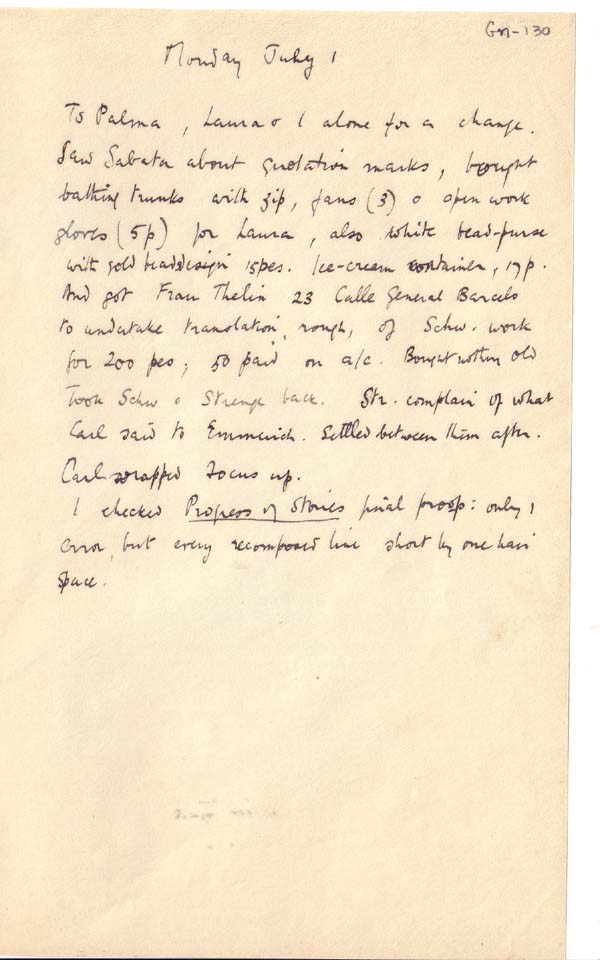 Gn-130
Monday July 1
To Palma, Laura & I alone for a change.
Saw Sabater about quotation marks, bought
bathing trunks with zip, fans (3) & open work
gloves (5p) for Laura, also white bead-purse
with gold bead design 15pes. Ice-cream container, 17p.
And got Frau Thelin 23 Calle General Barcelo
to undertake translation, rough, of Schw. work
for 200 pes; 50 paid on a/c. Bought nothing old
Took Schw & Strenge back. Str. complain of what
Carl said to Emmerich. Settled between them after.
Carl wrapped Focus up.
I checked Progress of Stories final proofs: only 1
error, but every recomposed line short by one hair
space.